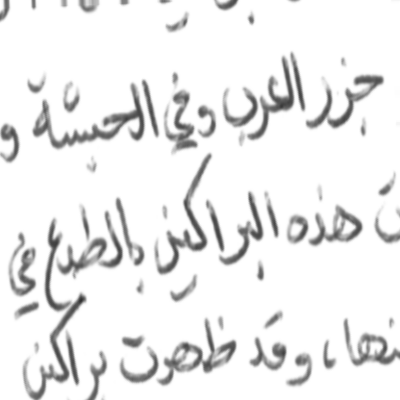 جزر العرب وفي الحبشة و
هذه البراكين بالطبع في
نها، وقد ظهرت براكين